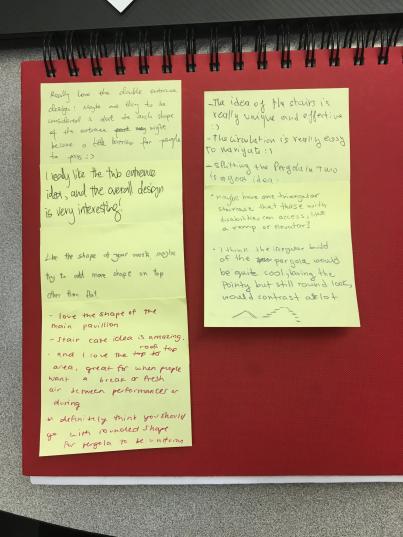 Really love the double entrance
design! Maybe one thing to be
considered is that the arch shape
of the entrance might
become a barrier for people
to pass :)
I really like the two entrance
idea, and the overall design
is very interesting!
Like the shape of your work, maybe
try to add more shape on top
other than flat
- love the shape of the
main pavillion
- stair case idea is amazing.
- and I love the roof top
area, great for when people
want a break or fresh
air between performances or
during
definitely think you should
go with rounded shape
for pergola to be uniform
- The idea of the stairs is
really unique and effective
:)
- The circulation is really easy
to navigate :)
- Splitting the Pergola in two
is a great idea.
* maybe have one triangular
staircase that those with
disabilities can access, like
a ramp or elevator?
- I think the irregular build
of the pergola would
be quite cool, having the
pointy but still round look,
would contrast a lot